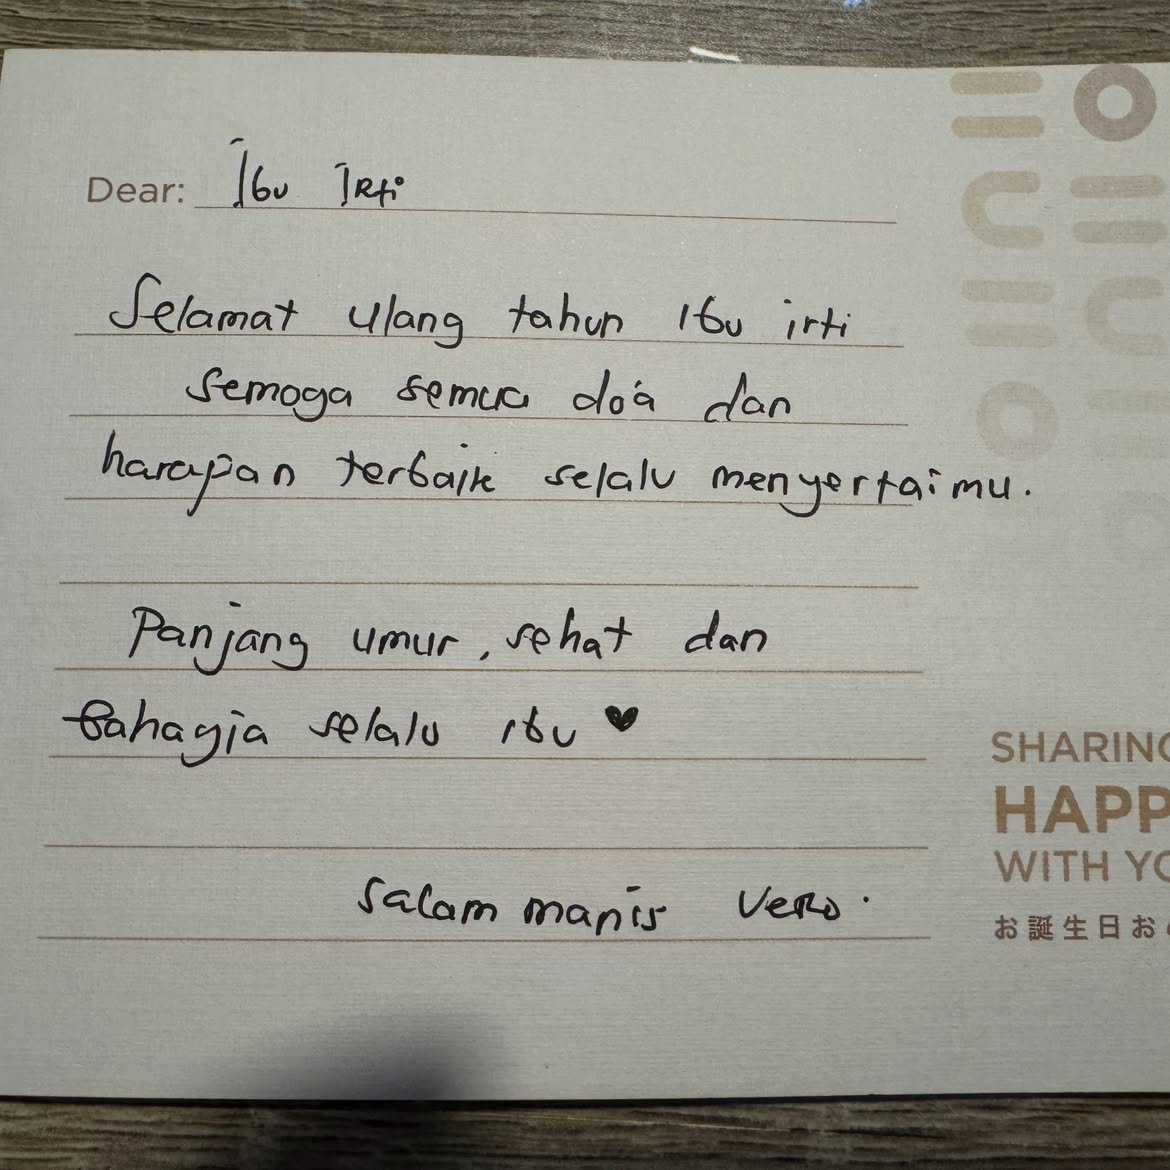 Dear: Ibu Irti
Selamat ulang tahun Ibu irti
semoga semua do'a dan
harapan terbaik selalu menyertaimu.
Panjang umur, sehat dan
Bahagia selalu ibu ♥
salam manis Vero.
SHARING
HAPP
WITH YO
お誕生日お